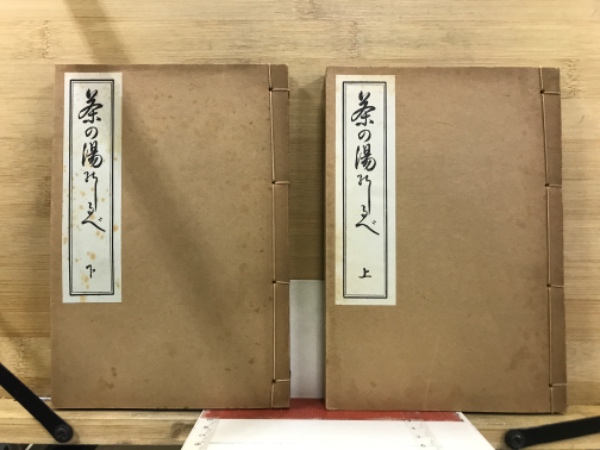 茶の湯のしるべ 上
茶の湯のしるべ 下